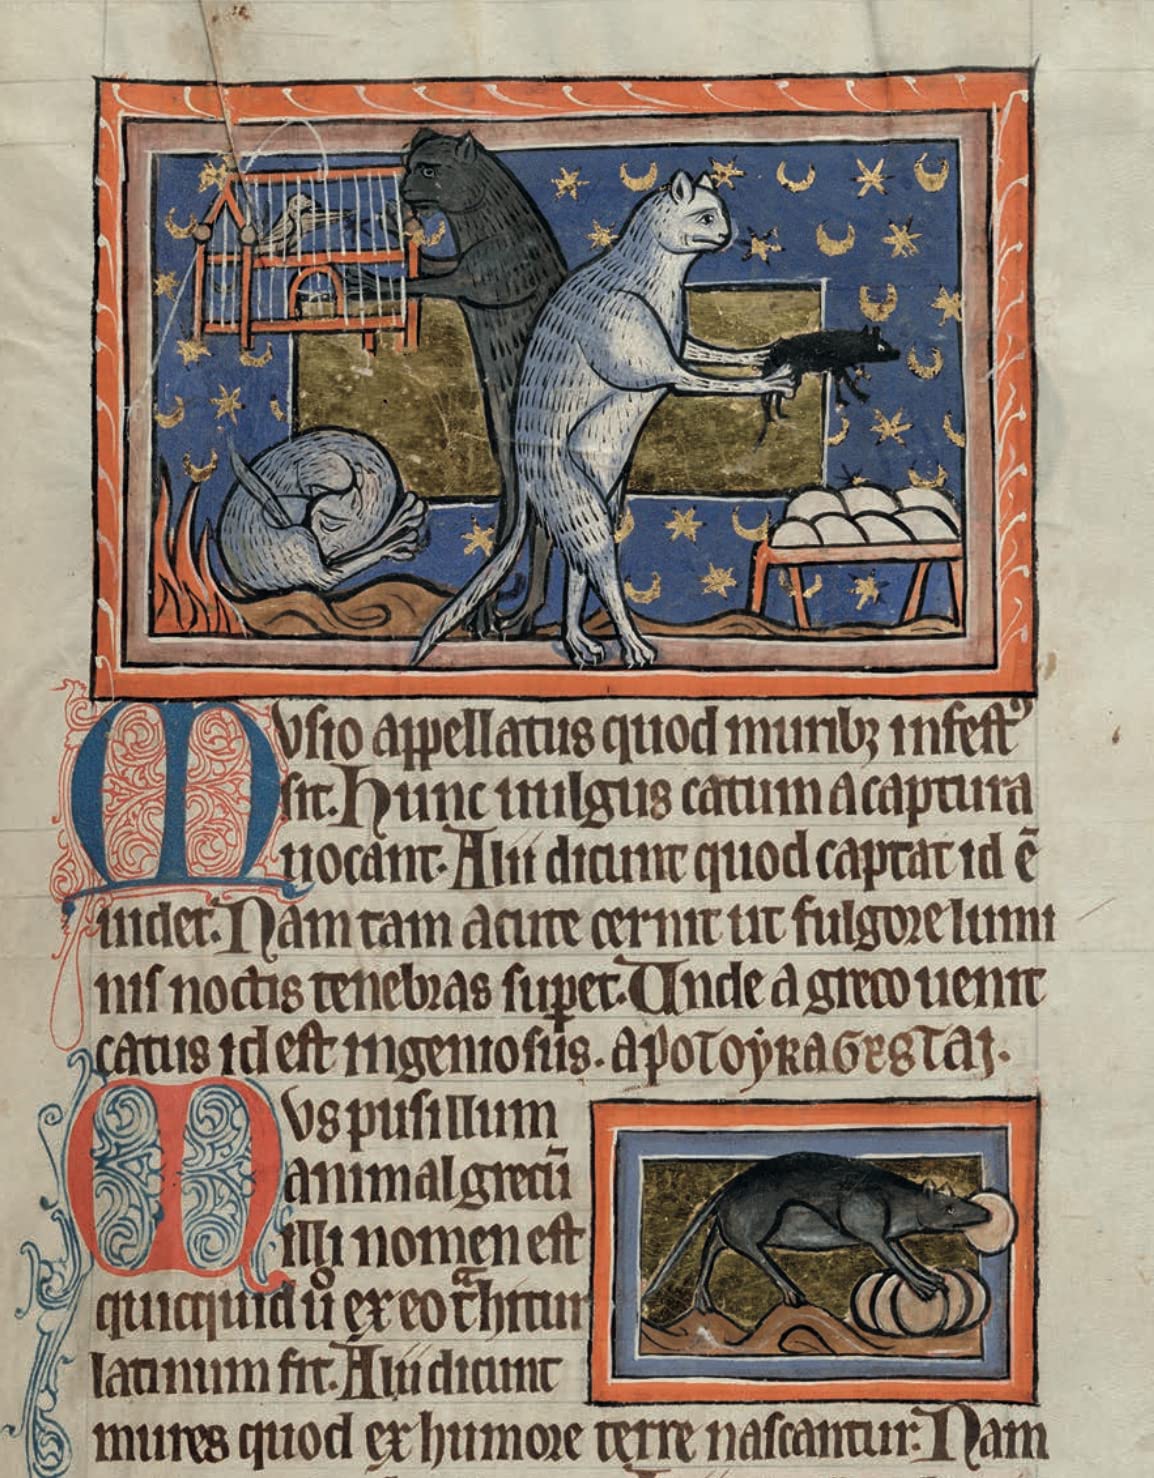 Musio appellatus quod murib; infestꝰ
sit. Hunc uulgus catum a captura
uocant. Alii dicunt quod captat id ē
uidet. Nam tam acute cernit ut fulgore lumi
nis noctis tenebras suꝑet. Unde a greco uenit
catus id est ingeniosus. apotoẏkagestaj.
Mus pusillum
animal grecū
illi nomen est
quicquid uͦ ex eo tͣhitur
latinum fit. Alii dicunt
mures quod ex humore terre nascantur. Nam